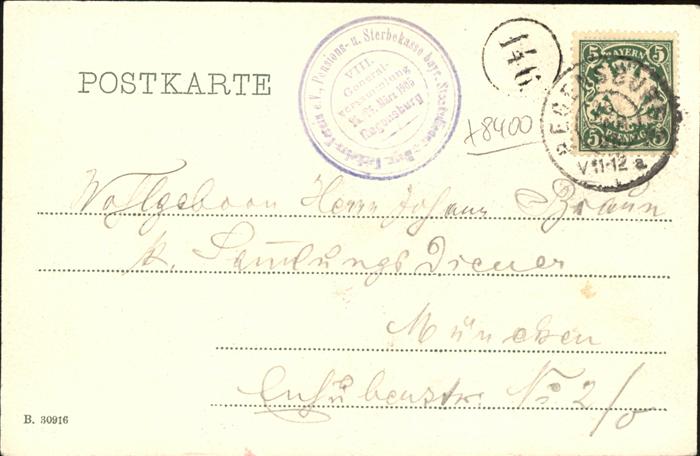 POSTKARTE
Pensions- u. Sterbekasse bayr.
VIII.
General-
versammlung
März 1905
Regensburg
146
5 BAYERN 5
5 PFENNIG 5
REGENSBURG
V 11-12 a
+8400
Wollgeboorn Herrn Johann Braun
k. Samlungs Diener
München
No 2/0
B. 30916